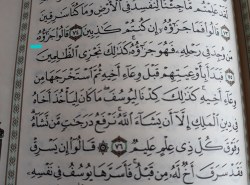 عَلِمْتُم مَّا جِئْنَا لِنُفْسِدَ فِي ٱلْأَرْضِ وَمَا كُنَّا سَٰرِقِينَ
٧٣ قَالُوا۟ فَمَا جَزَٰٓؤُهُۥٓ إِن كُنتُمْ كَٰذِبِينَ ٧٤ قَالُوا۟ جَزَٰٓؤُهُۥ
مَن وُجِدَ فِي رَحْلِهِۦ فَهُوَ جَزَٰٓؤُهُۥ ۚ كَذَٰلِكَ نَجْزِي ٱلظَّٰلِمِينَ
٧٥ فَبَدَأَ بِأَوْعِيَتِهِمْ قَبْلَ وِعَآءِ أَخِيهِ ثُمَّ ٱسْتَخْرَجَهَا مِن
وِعَآءِ أَخِيهِ ۚ كَذَٰلِكَ كِدْنَا لِيُوسُفَ ۖ مَا كَانَ لِيَأْخُذَ أَخَاهُ
فِي دِينِ ٱلْمَلِكِ إِلَّآ أَن يَشَآءَ ٱللَّهُ ۚ نَرْفَعُ دَرَجَٰتٍ مَّن نَّشَآءُ ۗ
وَفَوْقَ كُلِّ ذِي عِلْمٍ عَلِيمٌ ٧٦ قَالُوٓا۟ إِن يَسْرِقْ
فَقَدْ سَرَقَ أَخٌ لَّهُۥ مِن قَبْلُ ۚ فَأَسَرَّهَا يُوسُفُ فِي نَفْسِهِۦ